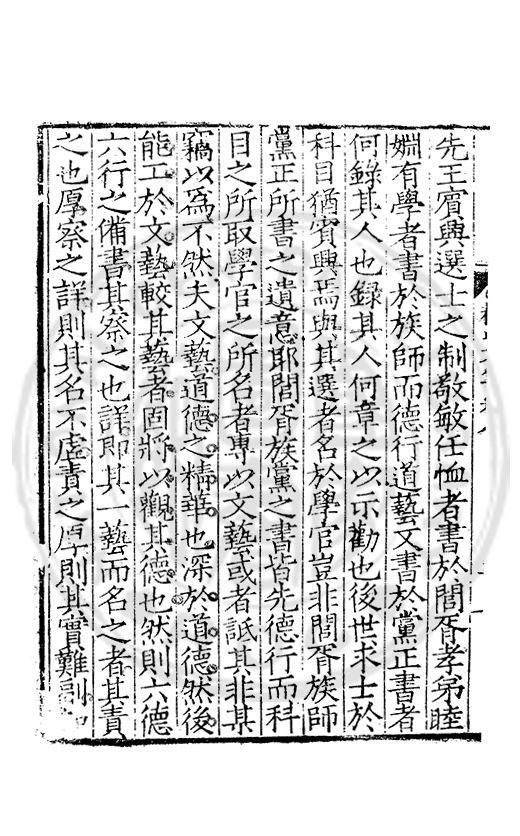 先王賓興選士之制敬敏任恤者書於閭胥孝弟睦
婣有學者書於族師而德行道藝又書於黨正書者
何錄其人也錄其人何章之以示勸也後世求士於
科目猶賓興焉與其選者名於學官豈非閭胥族師
黨正所書之遺意耶閭胥族黨之書皆先德行而科
目之所取學官之所名者專以文藝或者詆其非其
竊以為不然夫文藝道德之精華也深於道德然後
能工於文藝較其藝者固將以觀其德也然則六德
六行之備書其察之也詳即其一藝而名之者其責
之也厚察之詳則其名不虛責之厚則其實難副